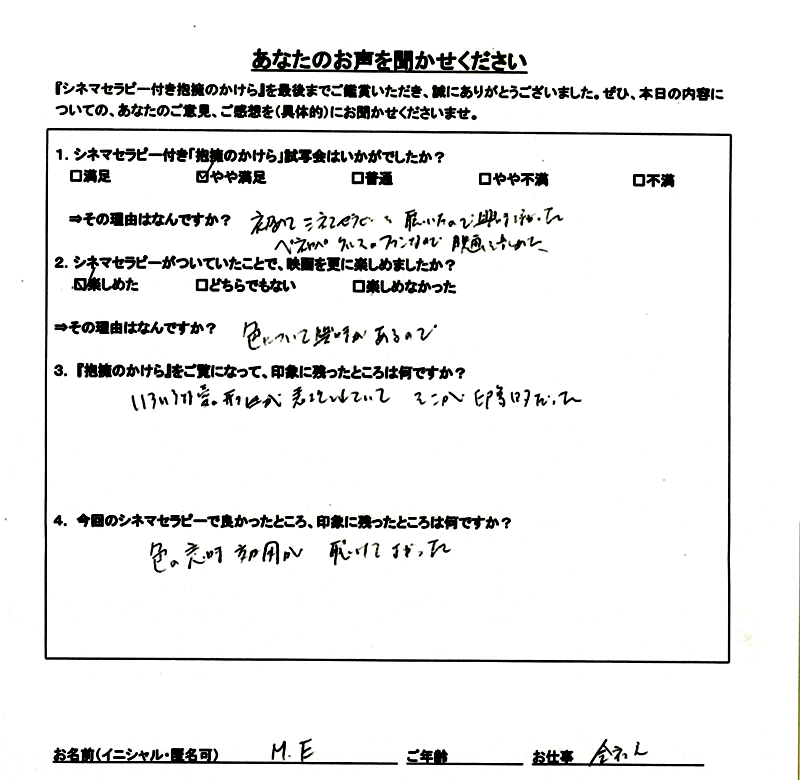 あなたのお声を聞かせください
『シネマセラピー付き抱擁のかけら』を最後までご鑑賞いただき、誠にありがとうございました。ぜひ、本日の内容に
ついての、あなたのご意見、ご感想を(具体的)にお聞かせくださいませ。
1. シネマセラピー付き「抱擁のかけら」試写会はいかがでしたか?
□満足 ☑やや満足 □普通 □やや不満 □不満
⇒その理由はなんですか? 初めてシネマセラピーを聴いたので
ペネロペ クルスのファンなので 映画も楽しめた
2. シネマセラピーがついていたことで、映画を更に楽しめましたか?
☑楽しめた □どちらでもない □楽しめなかった
⇒その理由はなんですか? 色について興味があるので
3. 『抱擁のかけら』をご覧になって、印象に残ったところは何ですか?
いろいろな愛の形が 表現されていて そこが 印象的だった
4. 今回のシネマセラピーで良かったところ、印象に残ったところは何ですか?
色の意味 効用が 聴けてよかった
お名前(イニシャル・匿名可) M.E ご年齢 お仕事